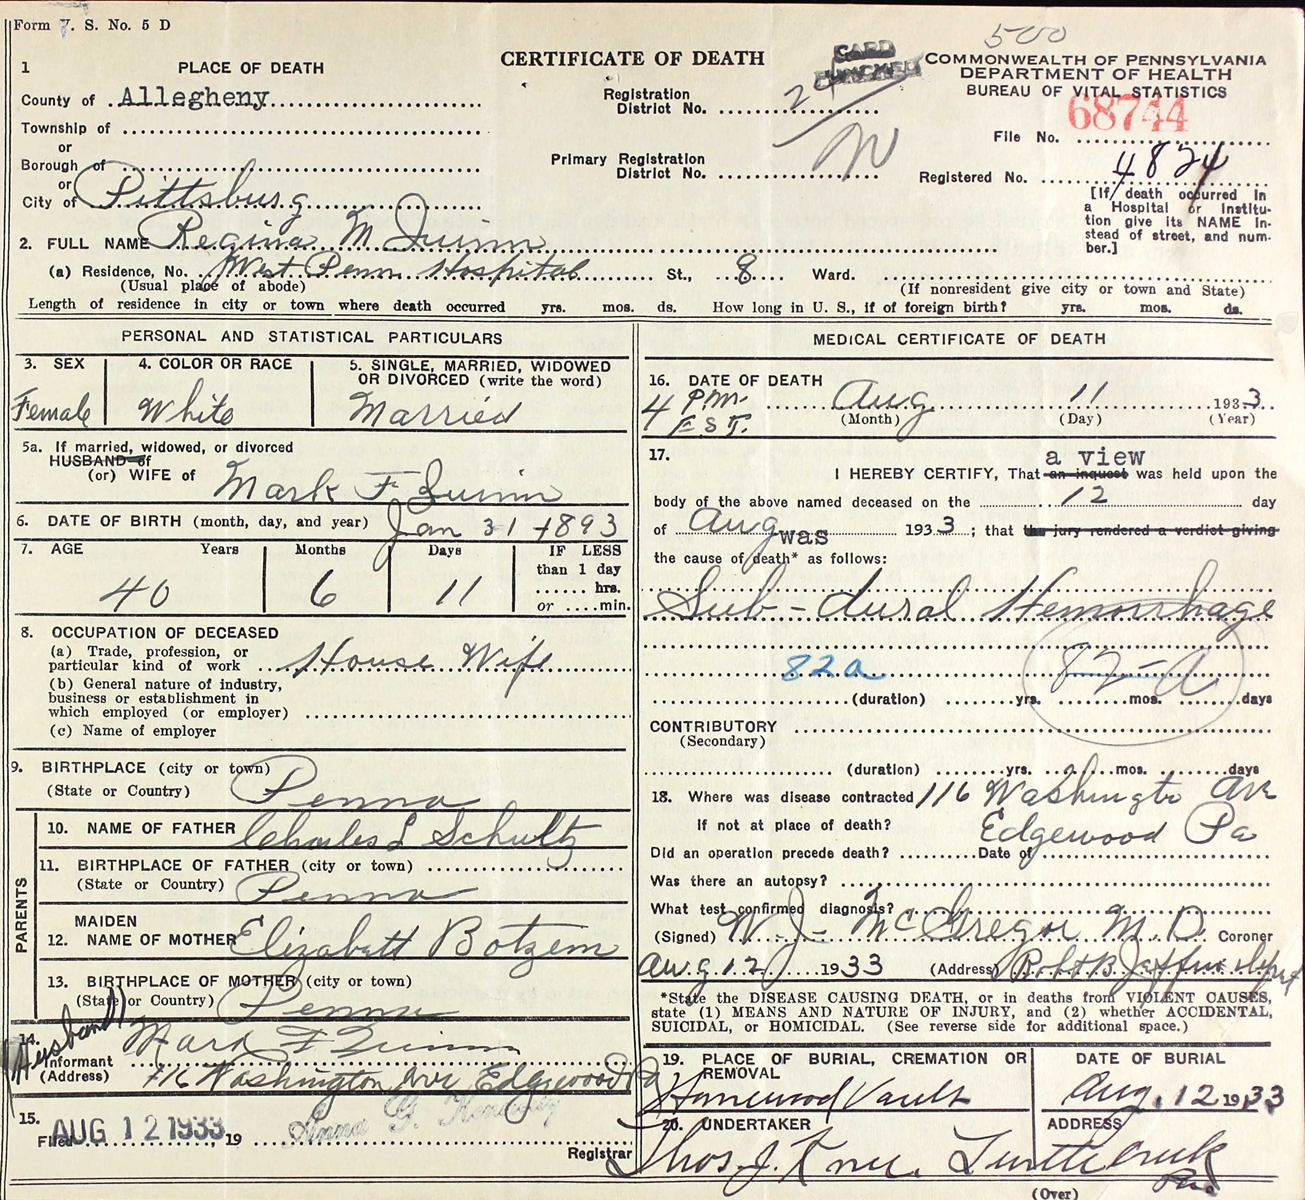 Form V. S. No. 5 D
500
CERTIFICATE OF DEATH
CARD PUNCHED
COMMONWEALTH OF PENNSYLVANIA
DEPARTMENT OF HEALTH
BUREAU OF VITAL STATISTICS
1 PLACE OF DEATH
County of Allegheny
Township of
or
Borough of
or
City of Pittsburg
Registration District No.
Primary Registration District No.
File No. 68744
Registered No. 4824
[If death occurred in
a Hospital or Institu-
tion give its NAME in-
stead of street, and num-
ber.]
2. FULL NAME Regina M Quinn
(a) Residence, No. West Penn Hospital St., 8 Ward.
(Usual place of abode) (If nonresident give city or town and State)
Length of residence in city or town where death occurred yrs. mos. ds. How long in U. S., if of foreign birth? yrs. mos. ds.
PERSONAL AND STATISTICAL PARTICULARS
3. SEX
Female
4. COLOR OR RACE
White
5. SINGLE, MARRIED, WIDOWED
OR DIVORCED (write the word)
Married
5a. If married, widowed, or divorced
HUSBAND of
(or) WIFE of Mark F Quinn
6. DATE OF BIRTH (month, day, and year) Jan 31 1893
7. AGE Years Months Days IF LESS
than 1 day
hrs.
or min.
40 6 11
8. OCCUPATION OF DECEASED
(a) Trade, profession, or
particular kind of work House Wife
(b) General nature of industry,
business or establishment in
which employed (or employer)
(c) Name of employer
9. BIRTHPLACE (city or town)
(State or Country) Penna
PARENTS
10. NAME OF FATHER Charles L Schultz
11. BIRTHPLACE OF FATHER (city or town)
(State or Country) Penna
MAIDEN
12. NAME OF MOTHER Elizabett Botzem
13. BIRTHPLACE OF MOTHER (city or town)
(State or Country) Penna
(Husband)
14. Informant Mark F Quinn
(Address) 116 Washington Ave Edgewood Pa
15. Filed AUG 12 1933, 19 Anna G. Kennedy
Registrar
MEDICAL CERTIFICATE OF DEATH
16. DATE OF DEATH
4 P.M. E.S.T. Aug 11 1933
(Month) (Day) (Year)
17. a view
I HEREBY CERTIFY, That an inquest was held upon the
body of the above named deceased on the 12 day
of Aug 1933; that the jury rendered a verdict giving
was
the cause of death* as follows:
Sub-dural Hemorrhage
82a 82-A
(duration) yrs. mos. days
CONTRIBUTORY
(Secondary)
(duration) yrs. mos. days
18. Where was disease contracted 116 Washington Ave
If not at place of death? Edgewood Pa
Did an operation precede death? Date of
Was there an autopsy?
What test confirmed diagnosis?
(Signed) W. J. McGregor M. D. Coroner
Aug 12 1933 (Address)
*State the DISEASE CAUSING DEATH, or in deaths from VIOLENT CAUSES,
state (1) MEANS AND NATURE OF INJURY, and (2) whether ACCIDENTAL,
SUICIDAL, or HOMICIDAL. (See reverse side for additional space.)
19. PLACE OF BURIAL, CREMATION OR
REMOVAL
Homewood Vault
DATE OF BURIAL
Aug. 12 1933
20. UNDERTAKER
Thos. J.
ADDRESS
Turtle Creek
Pa.
(Over)